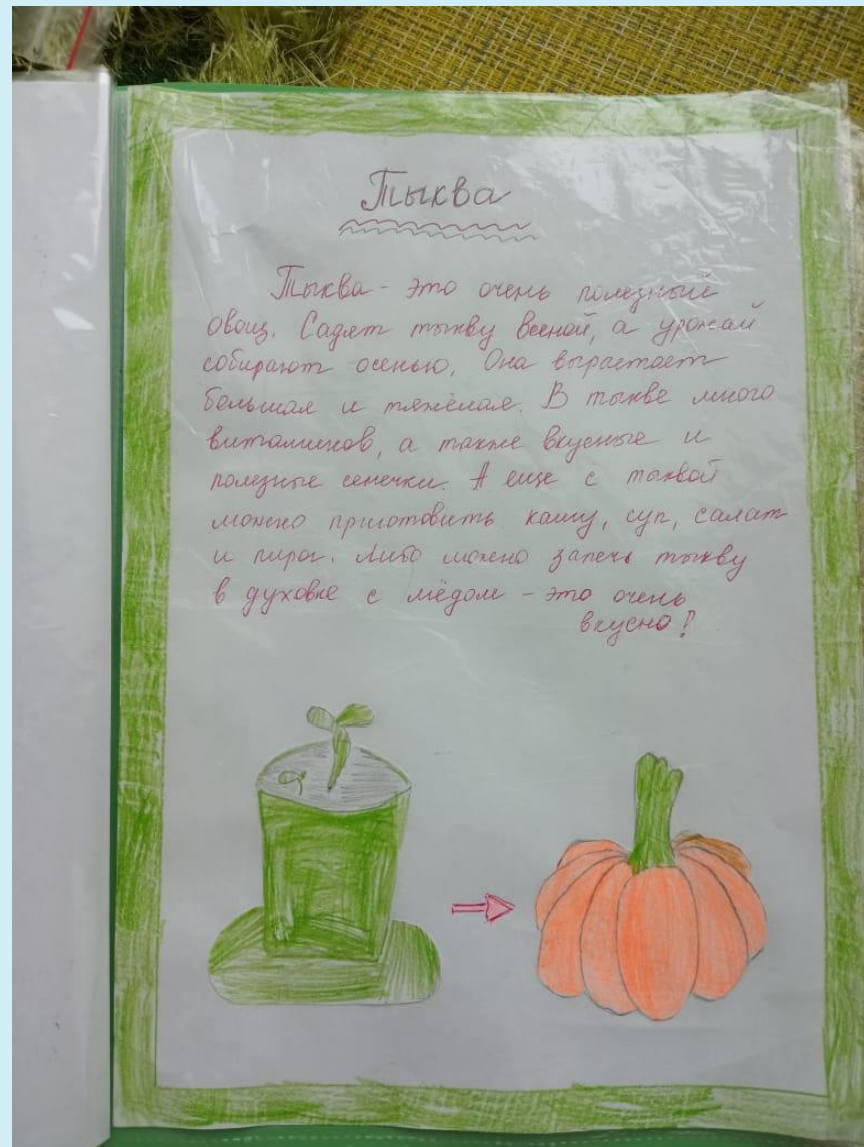 Тыква
Тыква - это очень полезный
овощ. Садят тыкву весной, а урожай
собирают осенью. Она вырастает
большая и тяжёлая. В тыкве много
витаминов, а также вкусные и
полезные семечки. А еще с тыквой
можно приготовить кашу, суп, салат
и пирог. Либо можно запечь тыкву
в духовке с мёдом - это очень
вкусно!